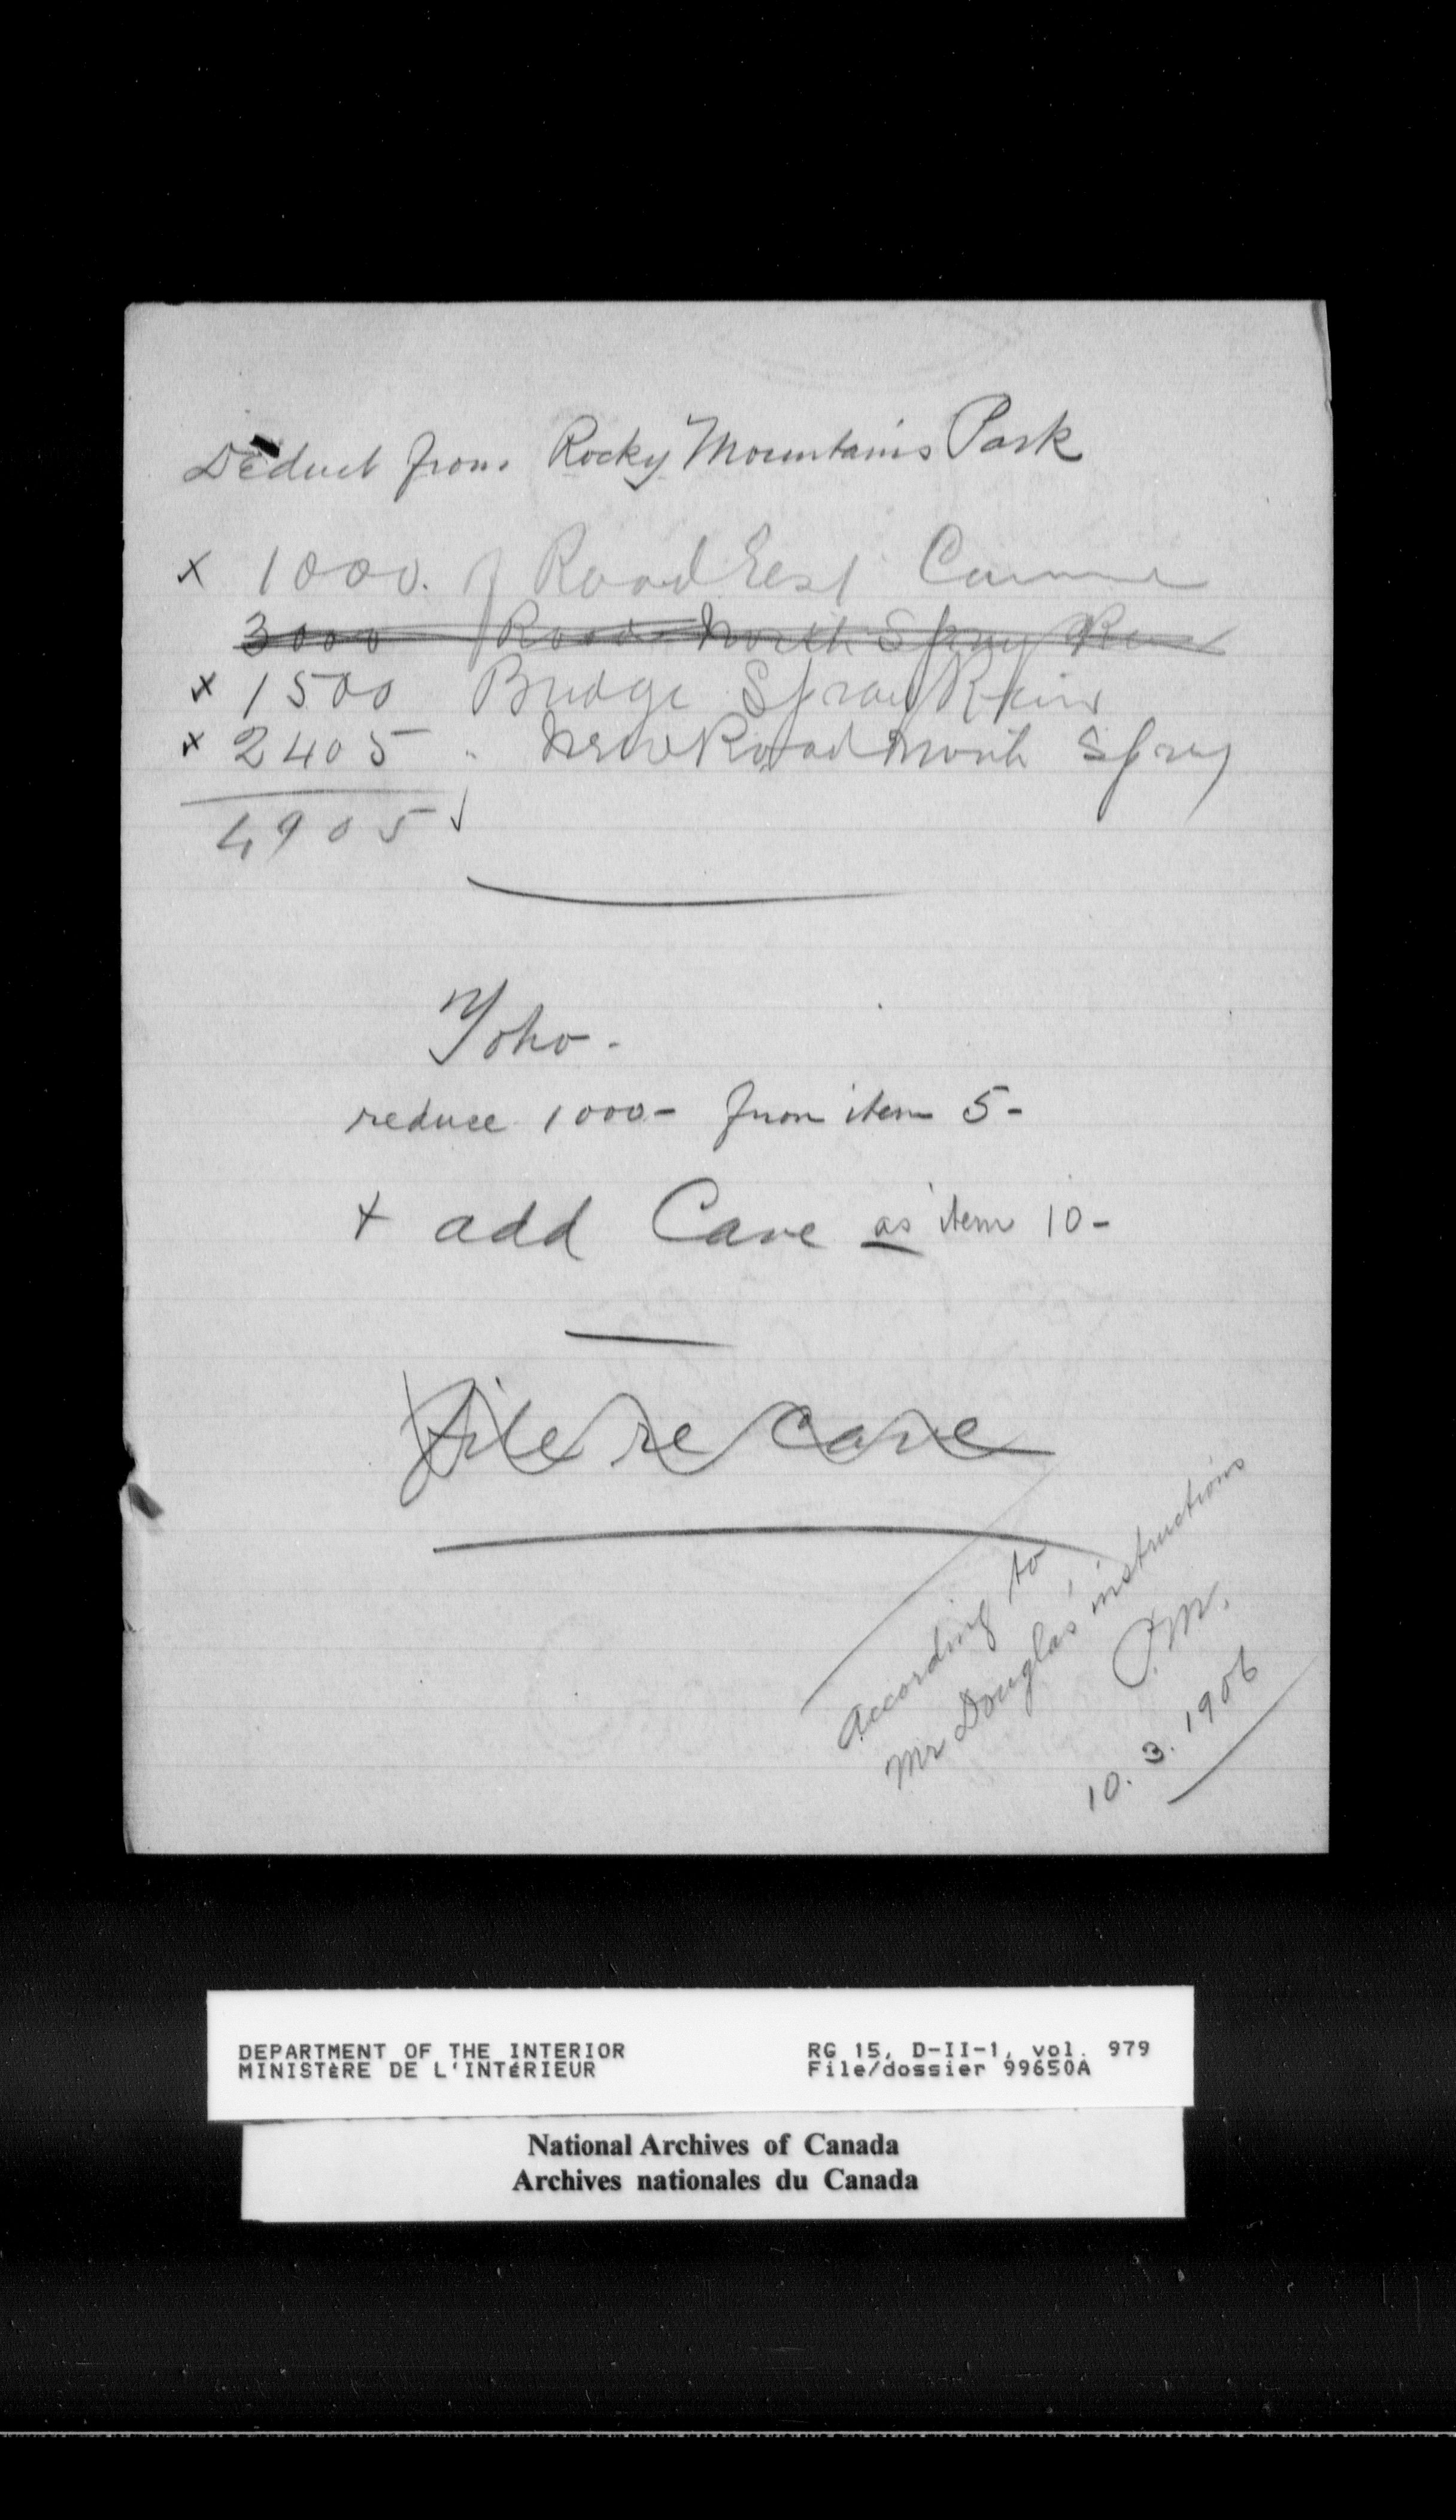 Deduct from Rocky Mountains Park
x 1000. Road East
3000 Road North Spray River
x 1500 Bridge Spray River
x 2405 " New Road North Spray
4905 ✓
Yoho -
reduce 1000- from item 5-
+ add Cave as item 10-
File re Cave
According to
Mr Douglas' instructions
P.M.
10. 3. 1906
DEPARTMENT OF THE INTERIOR
MINISTÈRE DE L'INTÉRIEUR
RG 15, D-II-1, vol. 979
File/dossier 99650A
National Archives of Canada
Archives nationales du Canada